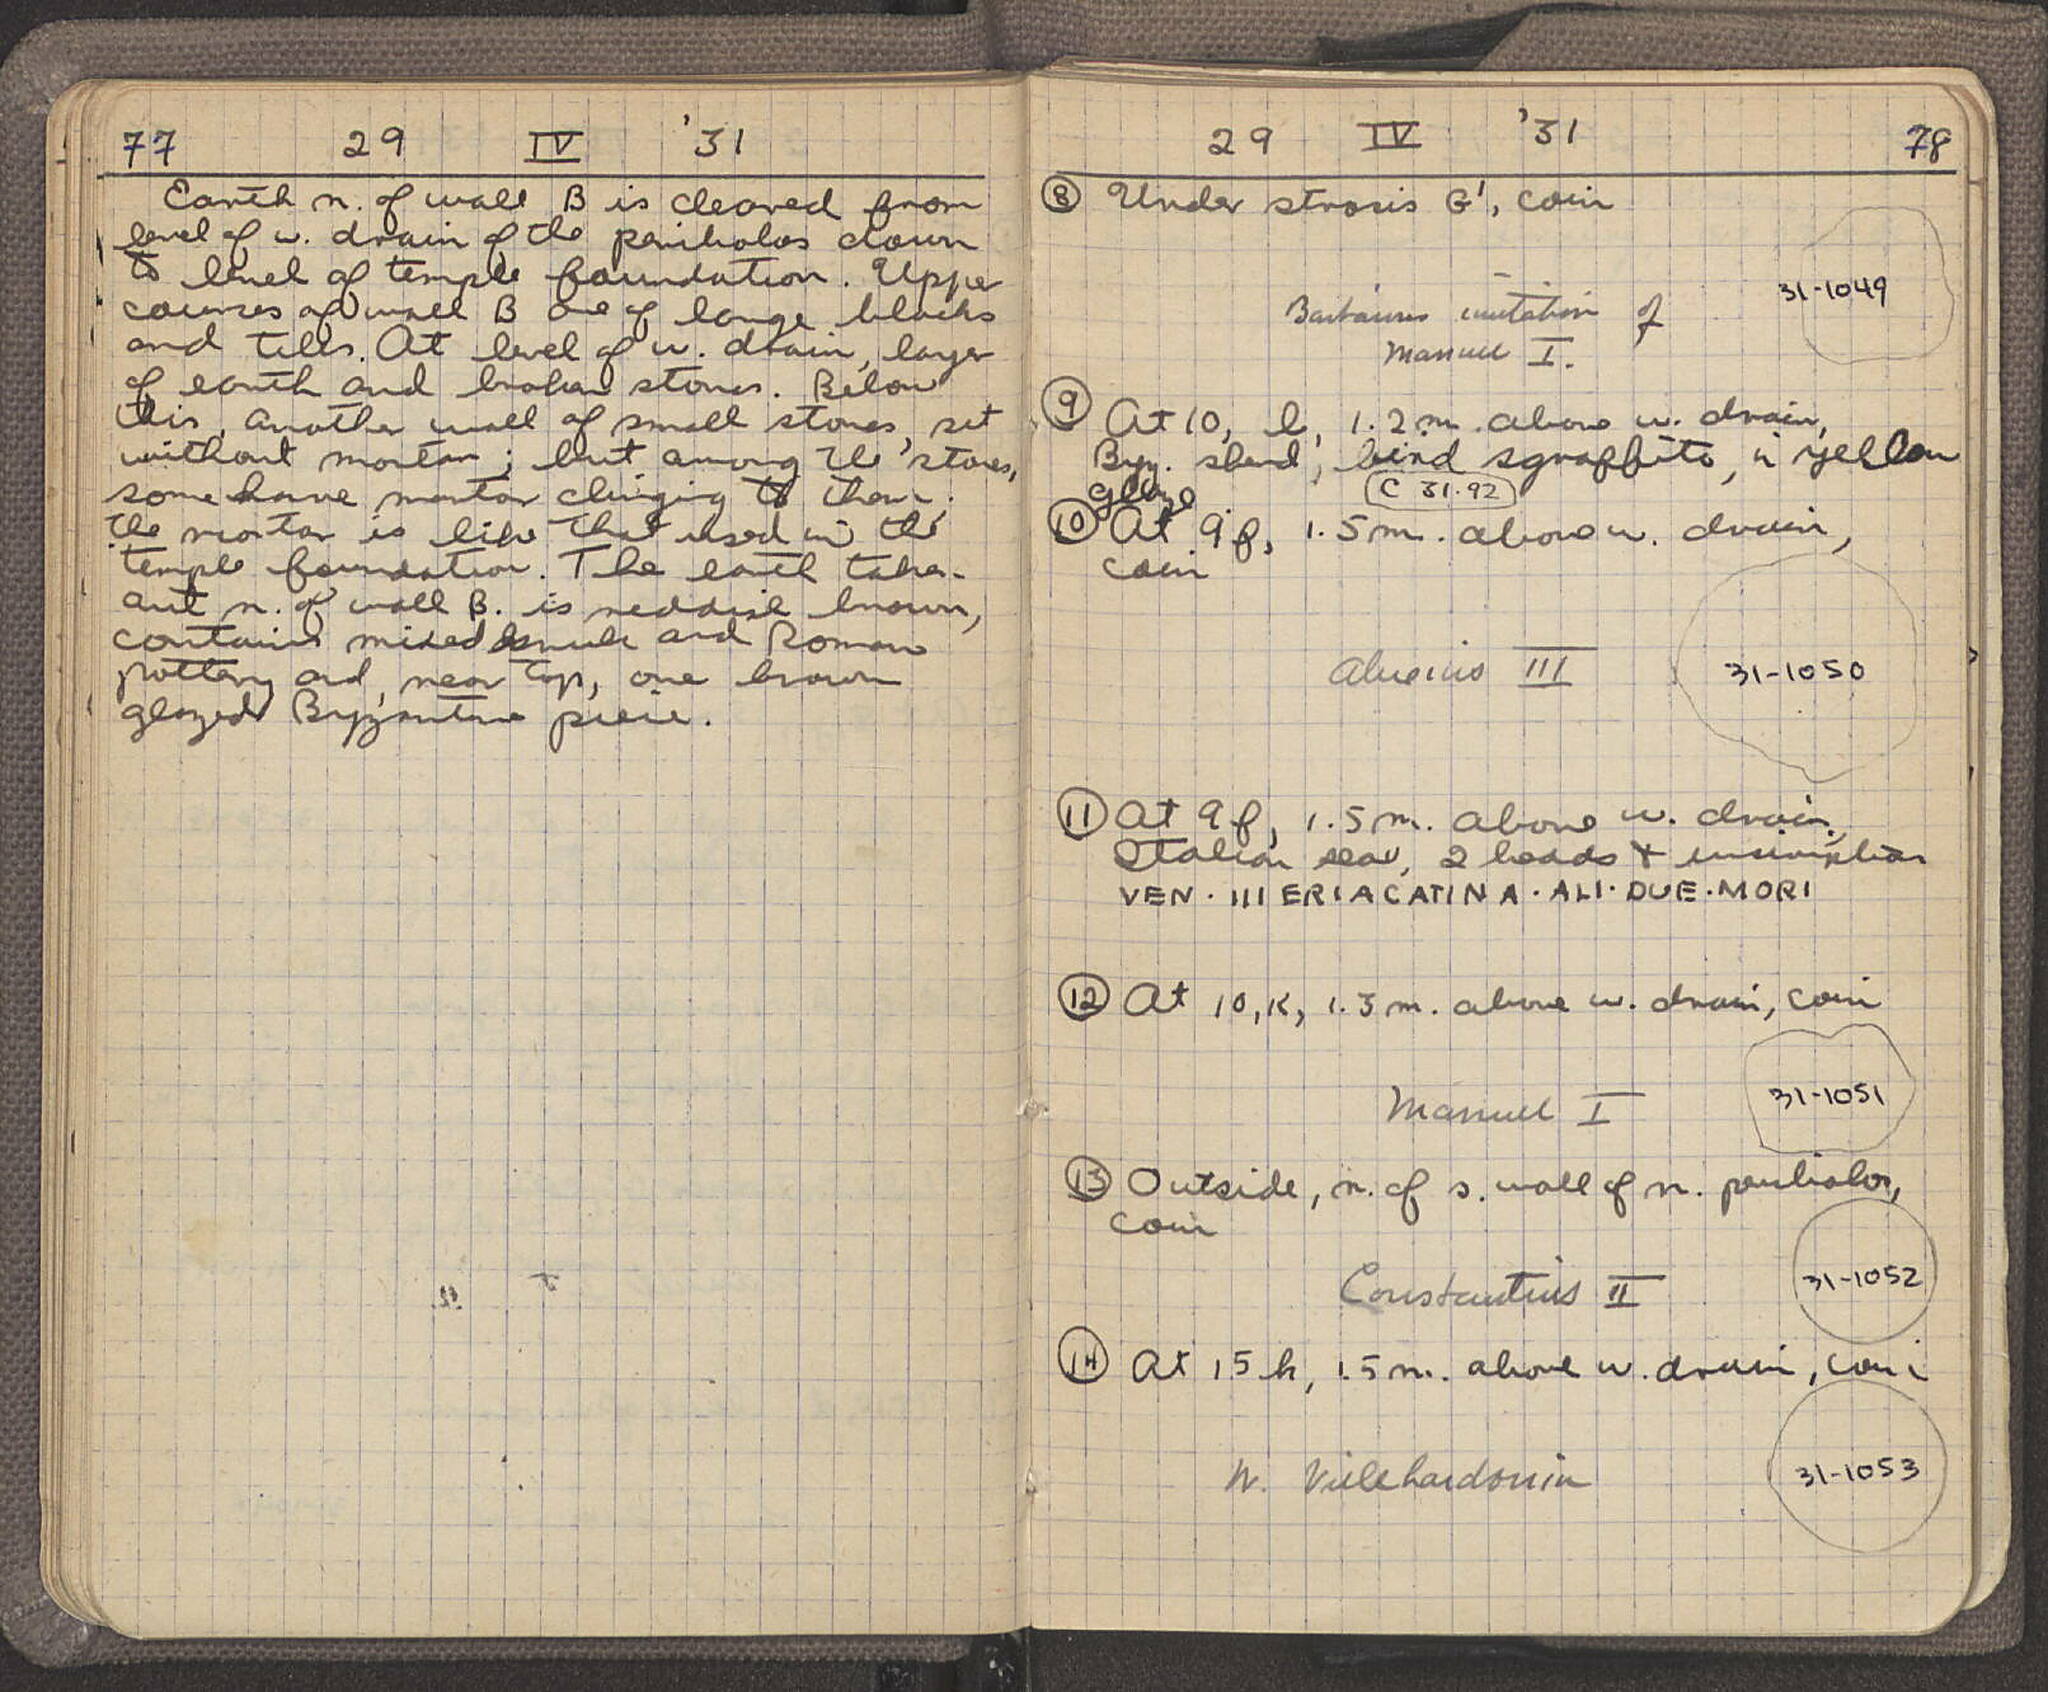 77 29 IV '31
Earth n. of wall B is cleared from
level of w. drain of the peribolos down
to level of temple foundation. Upper
courses of wall B are of large blocks
and tiles. At level of w. drain, layer
of earth and broken stones. Below
this, another wall of small stones, set
without mortar; but among the stones,
some have mortar clinging to them;
the mortar is like that used in the
temple foundation. The earth taken
out n. of wall B. is reddish brown,
contains mixed Greek and Roman
pottery and, near top, one brown
glazed Byzantine piece.
29 IV '31 78
8 Under strosis G', coin
31-1049
imitation of
Manuel I.
9 At 10, l, 1.2 m. above w. drain,
Byz. sherd, bird sgraffito, in yellow
glaze
C 31.92
10 At 9 f, 1.5 m. above w. drain,
coin
Alexius III
31-1050
11 At 9 f, 1.5 m. above w. drain,
Italian seal, 2 heads + inscription
VEN · III ERIACATINA · ALI · DUE · MORI
12 At 10, K, 1.3 m. above w. drain, coin
Manuel I
31-1051
13 Outside, n. of s. wall of n. peribolos,
coin
Constantius II
31-1052
14 At 15 h, 1.5 m. above w. drain, coin
W. Villehardouin
31-1053